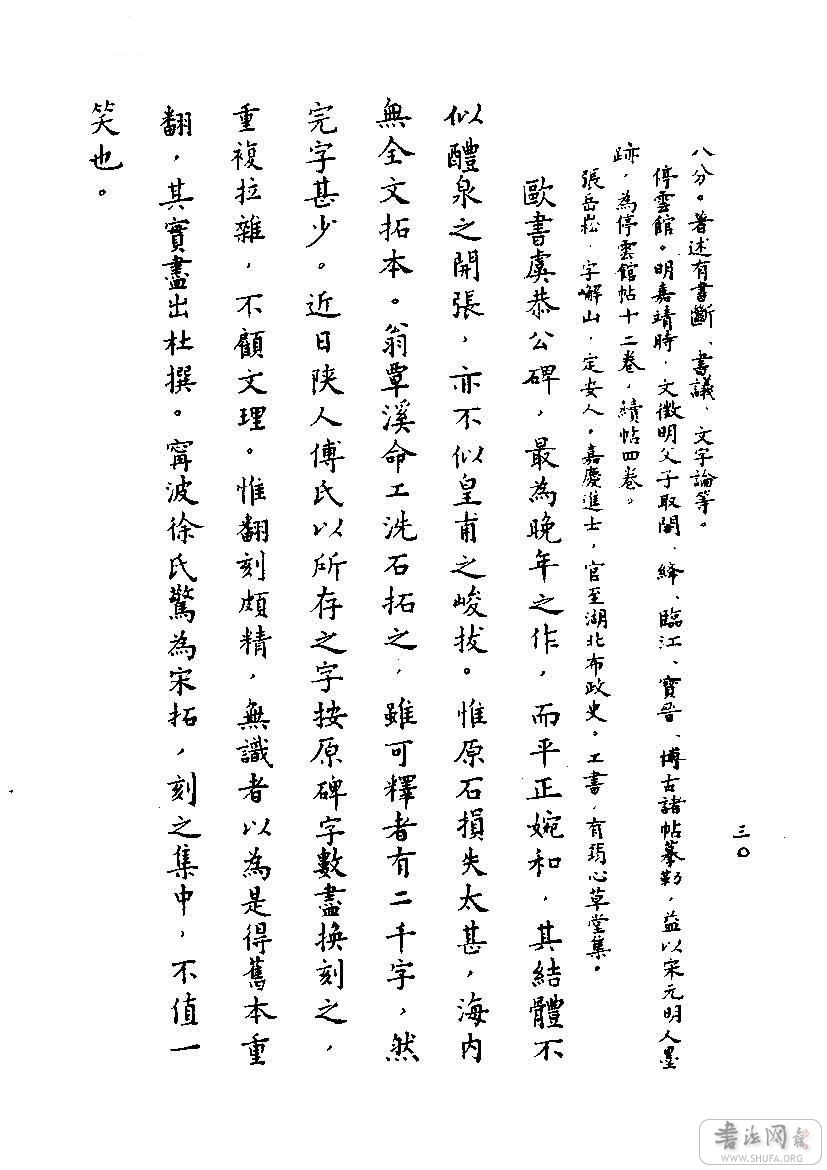 八分。著述有書斷、書議、文字論等。
停雲館。明嘉靖時，文徵明父子取閣、絳、臨江、寶晉、博古諸帖摹勒，益以宋元明人墨
跡，為停雲館帖十二卷，續帖四卷。
張岳崧，字解山，定安人。嘉慶進士，官至湖北布政史。工書，有筠心草堂集。
歐書虞恭公碑，最為晚年之作，而平正婉和，其結體不
似醴泉之開張，亦不似皇甫之峻拔。惟原石損失太甚，海内
無全文拓本。翁覃溪命工洗石拓之，雖可釋者有二千字，然
完字甚少。近日陝人傅氏以所存之字按原碑字數盡換刻之，
重複拉雜，不顧文理。惟翻刻頗精，無識者以為是得舊本重
翻，其實盡出杜撰。甯波徐氏驚為宋拓，刻之集中，不值一
笑也。
三〇
書法网
WWW.SHUFA.ORG